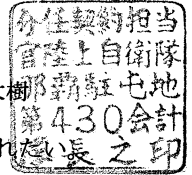 分任契約担当
官陸上自衛隊
那覇駐屯地
第430会計
隊長之印
樹
れたい